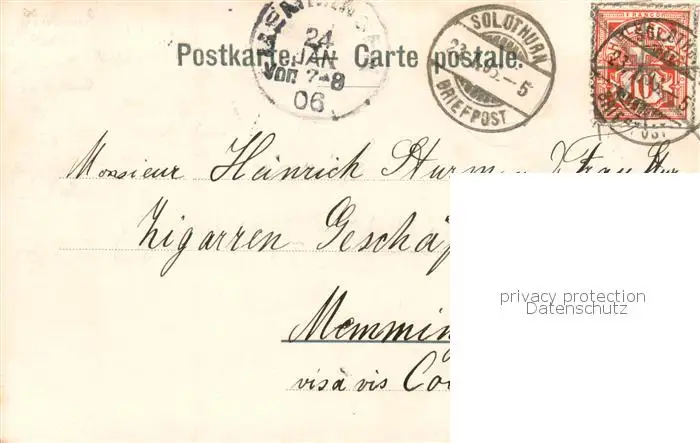 Postkarte. Carte postale.
24
JAN
VOR 7-8
06
SOLOTHURN
BRIEFPOST
FRANCO
10
Monsieur Heinrich Sturm
Zigarren Geschäf
Memming
visà vis Co
privacy protection
Datenschutz